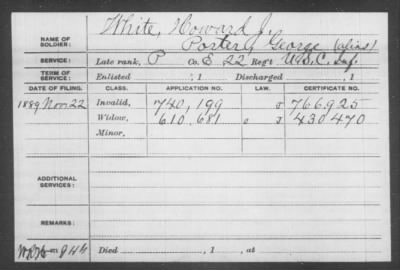 NAME OF SOLDIER: White, Howard J.
Porter, George (alias)
SERVICE: Late rank, P Co. E 22 Reg't U.S.C. Inf.
TERM OF SERVICE: Enlisted , 1 Discharged , 1
DATE OF FILING. CLASS. APPLICATION NO. LAW. CERTIFICATE NO.
1889 Nov. 22 Invalid, 740,199 J 766925
Widow, 610,681 J 430470
Minor,
ADDITIONAL SERVICES:
REMARKS:
Died , 1 , at